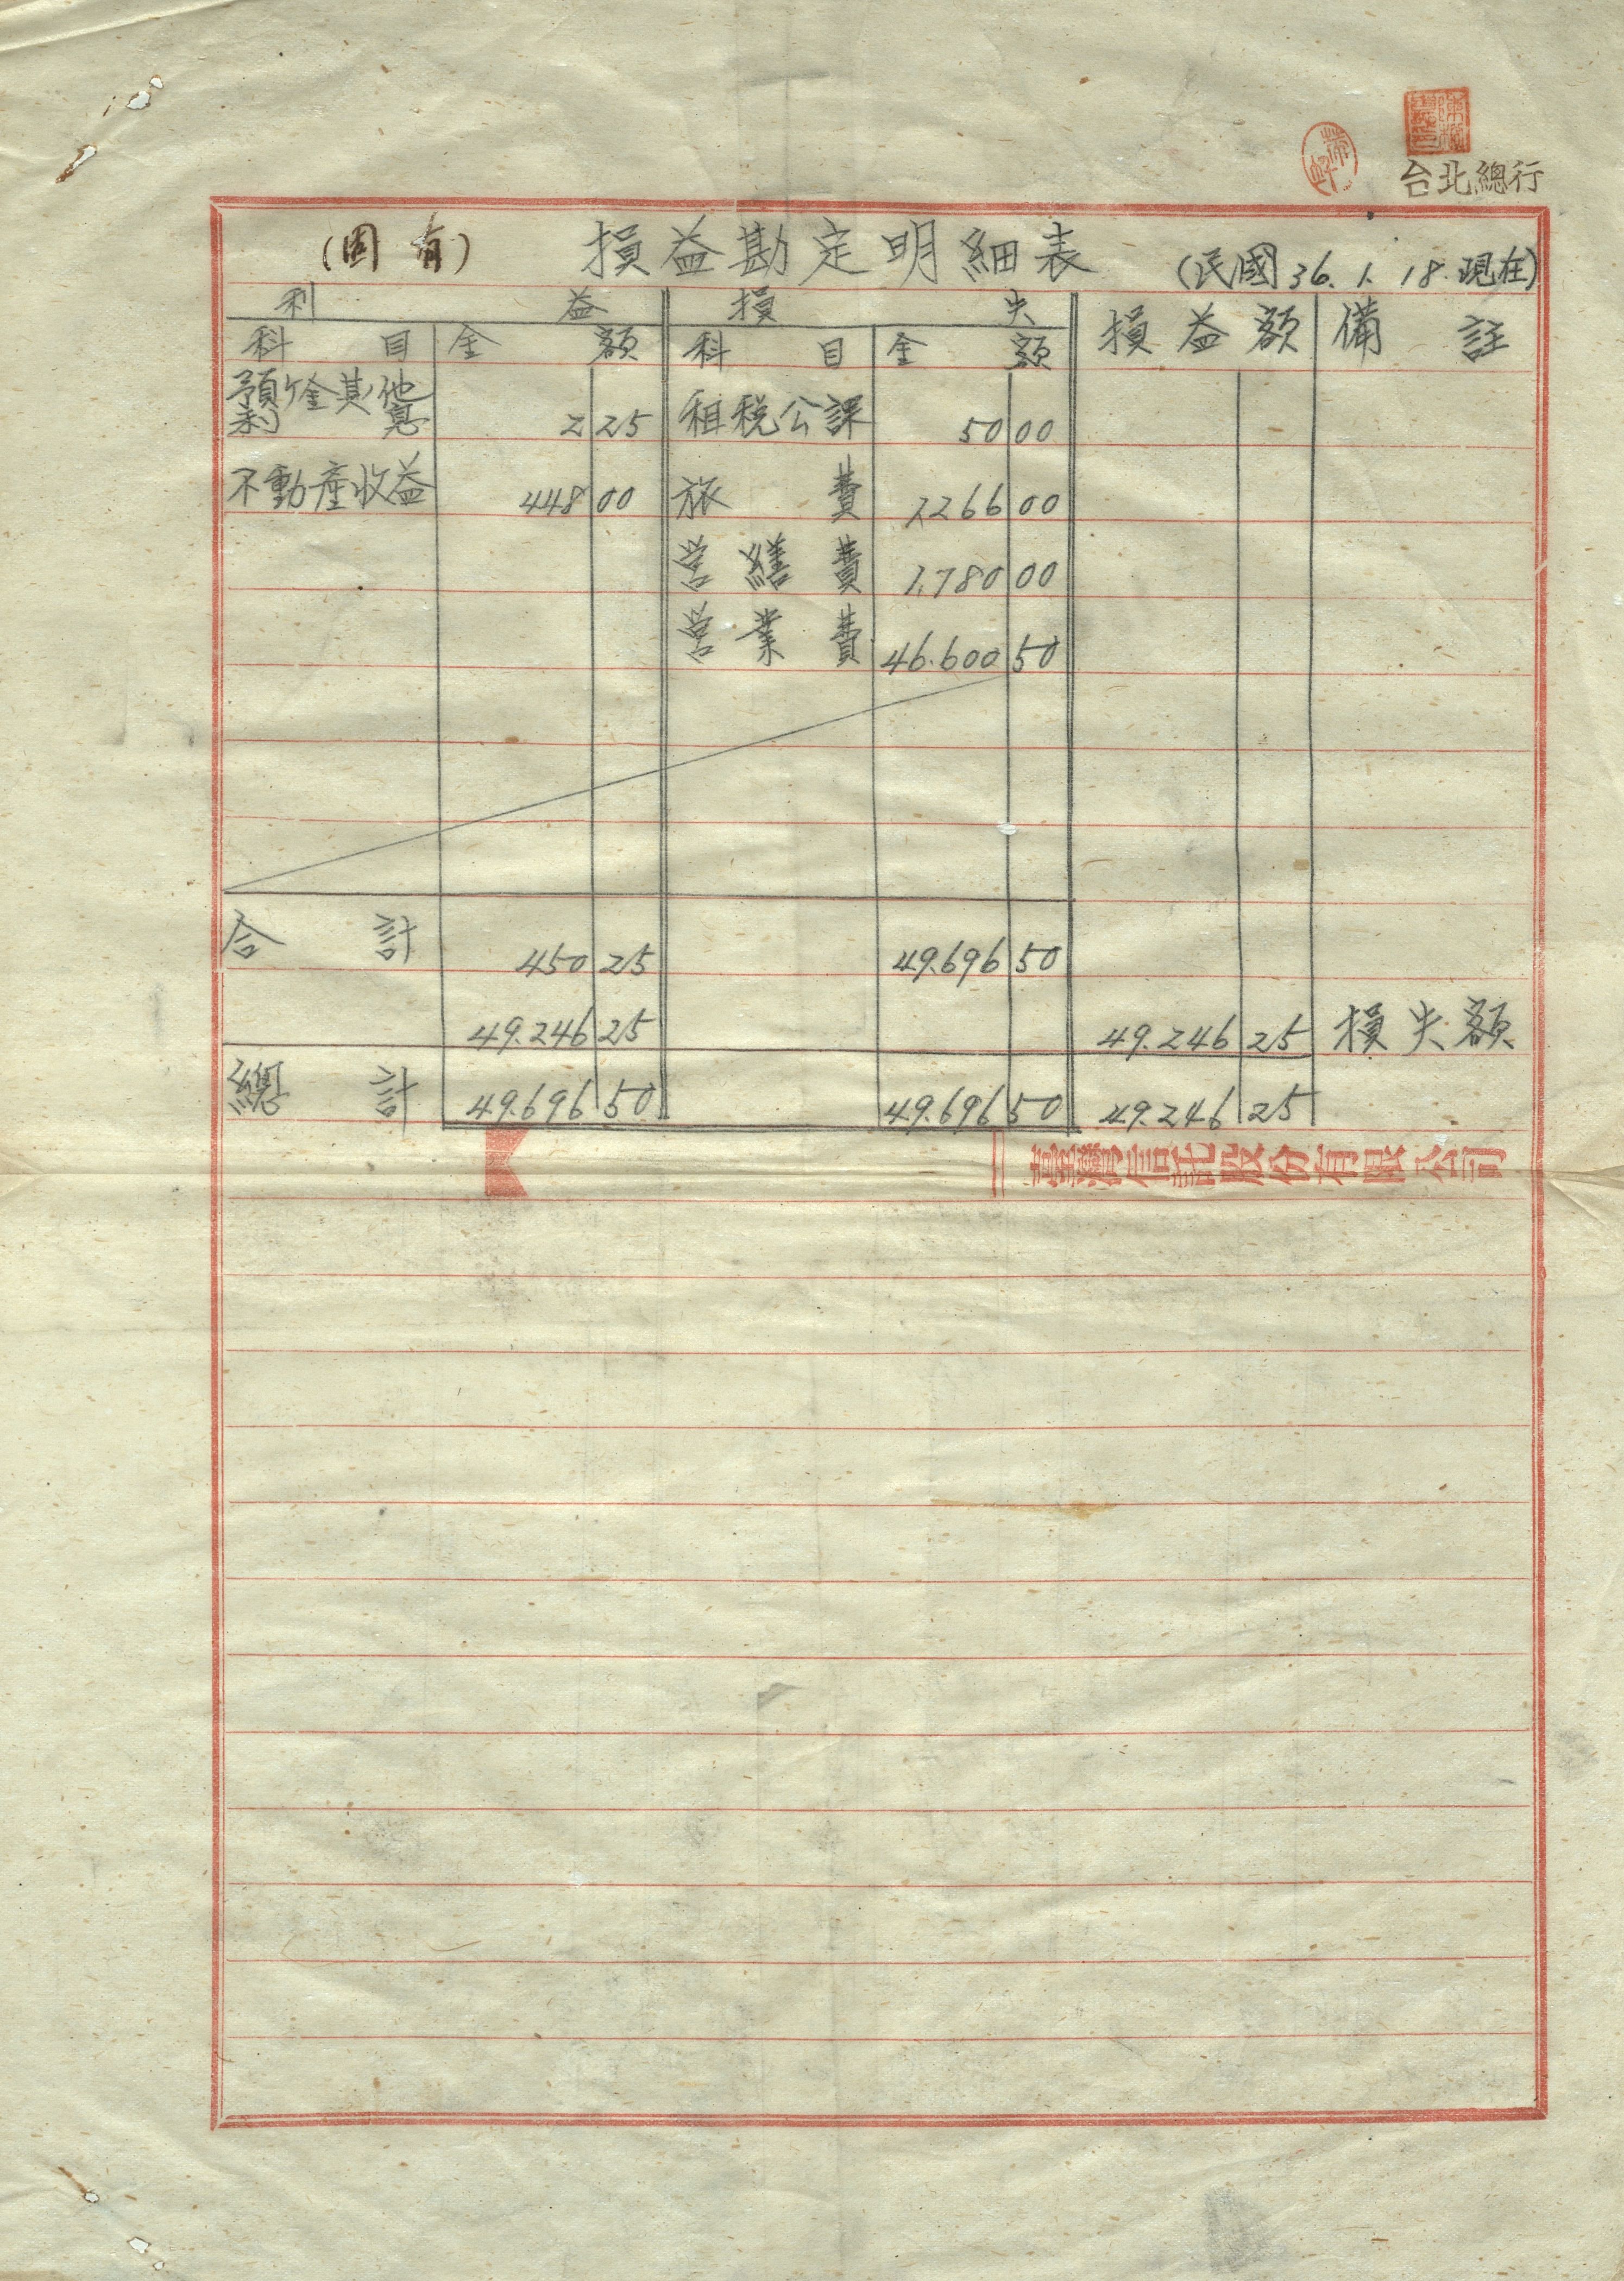 台北總行
(固有) 損益勘定明細表 (民國36.1.18.現在)
利益 損失 損益額 備註
科目 金額 科目 金額
預ケ金其他利息 2 25 租稅公課 50 00
不動產收益 448 00 旅費 1,266 00
営繕費 1,780 00
営業費 46.600 50
合計 450 25 49.696 50
49.246 25 49.246 25 損失額
總計 49.696 50 49.696 50 49.246 25
臺灣信託股份有限公司